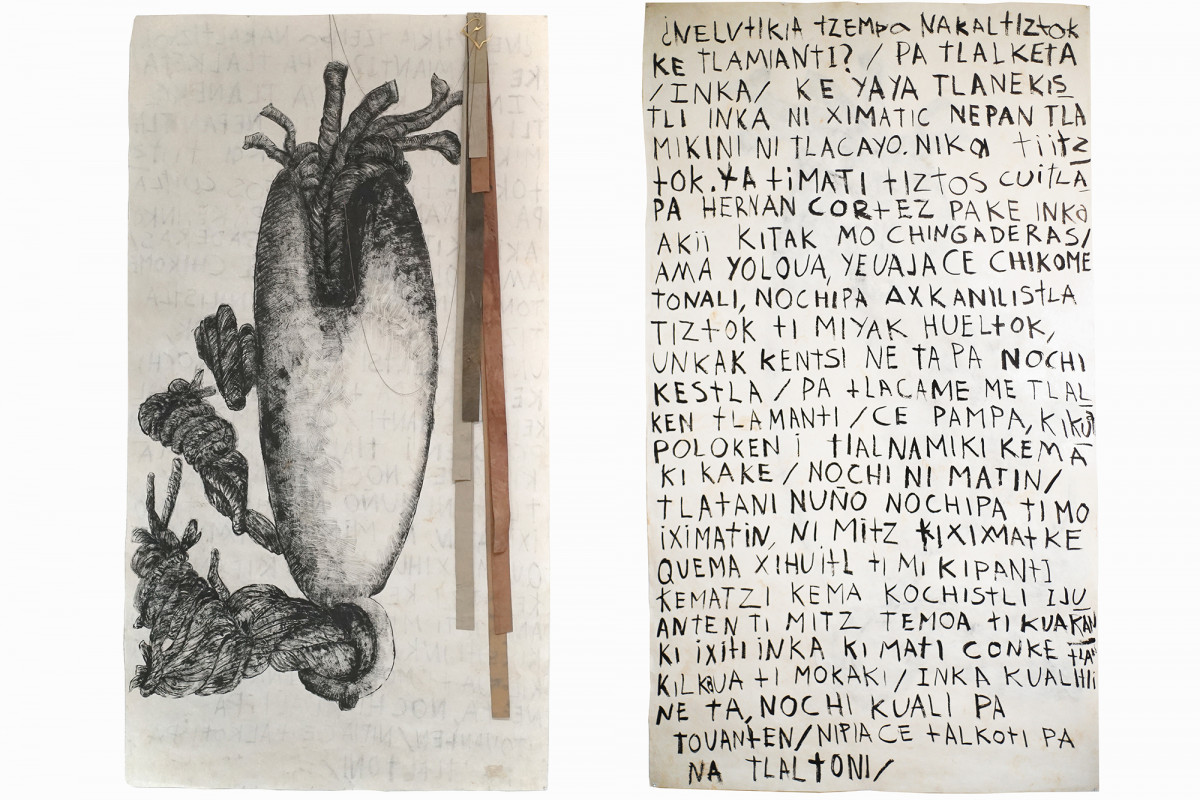 ¿NELUTIKIA TZEMPA NAKALTIZTOK
KE TLAMIANTI? / PA TLALKETA
/INKA/ KE YAYA TLANEKIS_
TLI INKA NI XIMATIC NEPAN TLA
MIKINI NI TLACAYO. NIKA TIITZ_
TOK. YA TIMATI TIZTOS CUITLA_
PA HERNAN CORTEZ PAKE INKA
AKII KITAK MO CHINGADERAS/
AMA YOLOUA, YEUAJACE CHIKOME
TONALI, NOCHIPA AXKANILISTLA
TIZTOK TI MIYAK HUELTOK,
UNKAK KENTSI NE TA PA NOCHI
KESTLA / PA TLACAME ME TLAL_
KEN TLAMANTI / CE PAMPA,
POLOKEN I TLALNAMIKI KEMA_
KI KAKE / NOCHI NI MATIN/
TLATANI NUÑO NOCHIPA TI MO
IXIMATIN, NI MITZ KIXIMATKE
QUEMA XIHUITL TI MI KIPANTI
KEMATZI KEMA KOCHISTLI IJU_
ANTEN TI MITZ TEMOA TI
KI IXITI INKA KI MATI CONKE
KILKAUA TI MOKAKI / INKA KUALHLI
NE TA, NOCHI KUALI PA
TOUANTEN/NIPIA CE TALKOTI PA
NA TLALTONI/